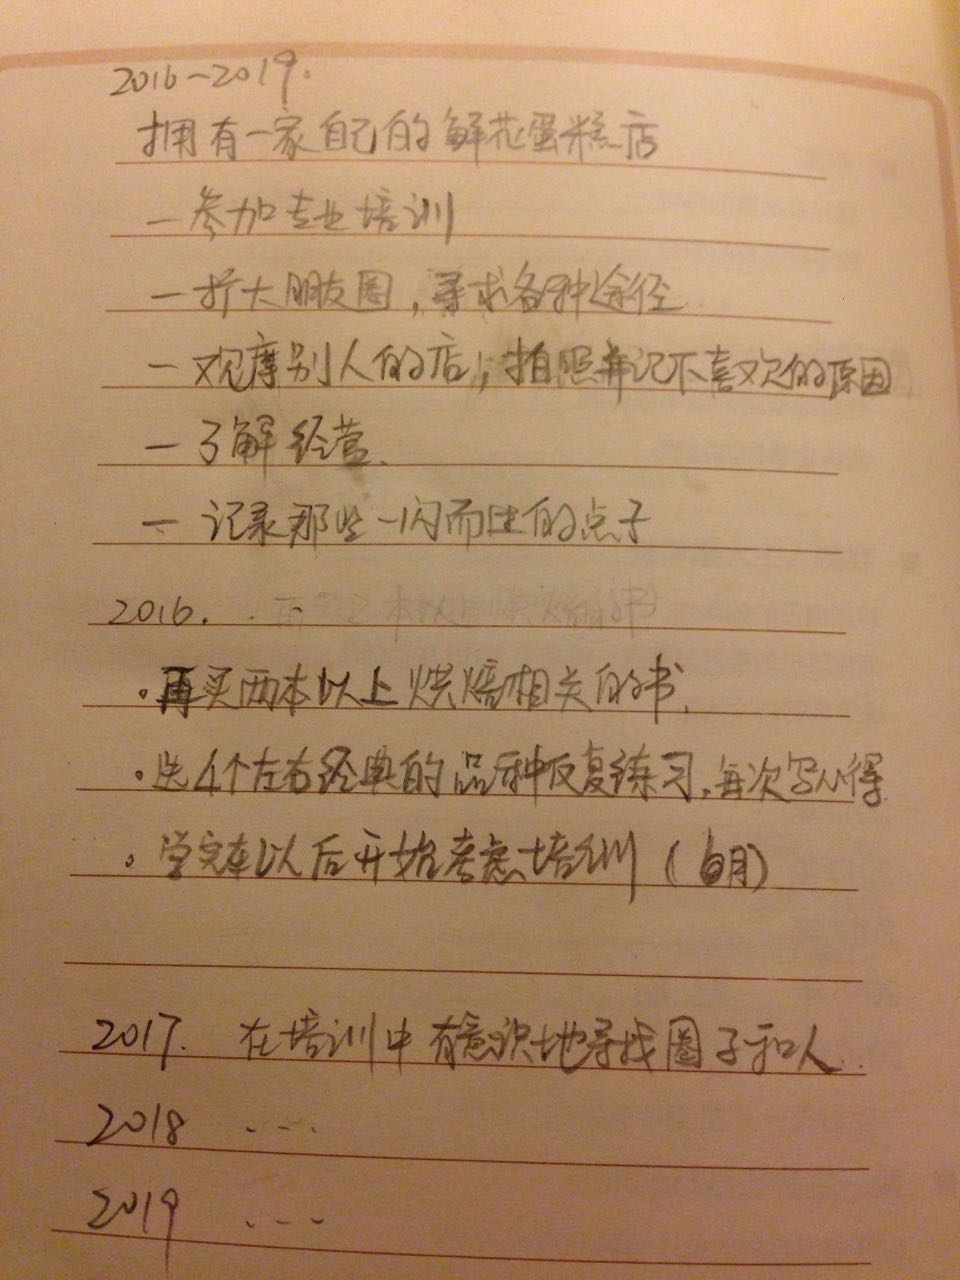 2016~2019.
拥有一家自己的鲜花蛋糕店
—参加专业培训
—扩大朋友圈，寻求各种途径
—观摩别人的店，拍照并记不喜欢的原因
—了解经营.
—记录那些一闪而过的点子
2016.
·再买两本以上烘焙相关的书.
·选4个左右经典的品种反复练习，每次写心得
·学完车以后开始考虑培训（月）
2017. 在培训中有意识地寻找圈子和人.
2018 ...
2019 ...